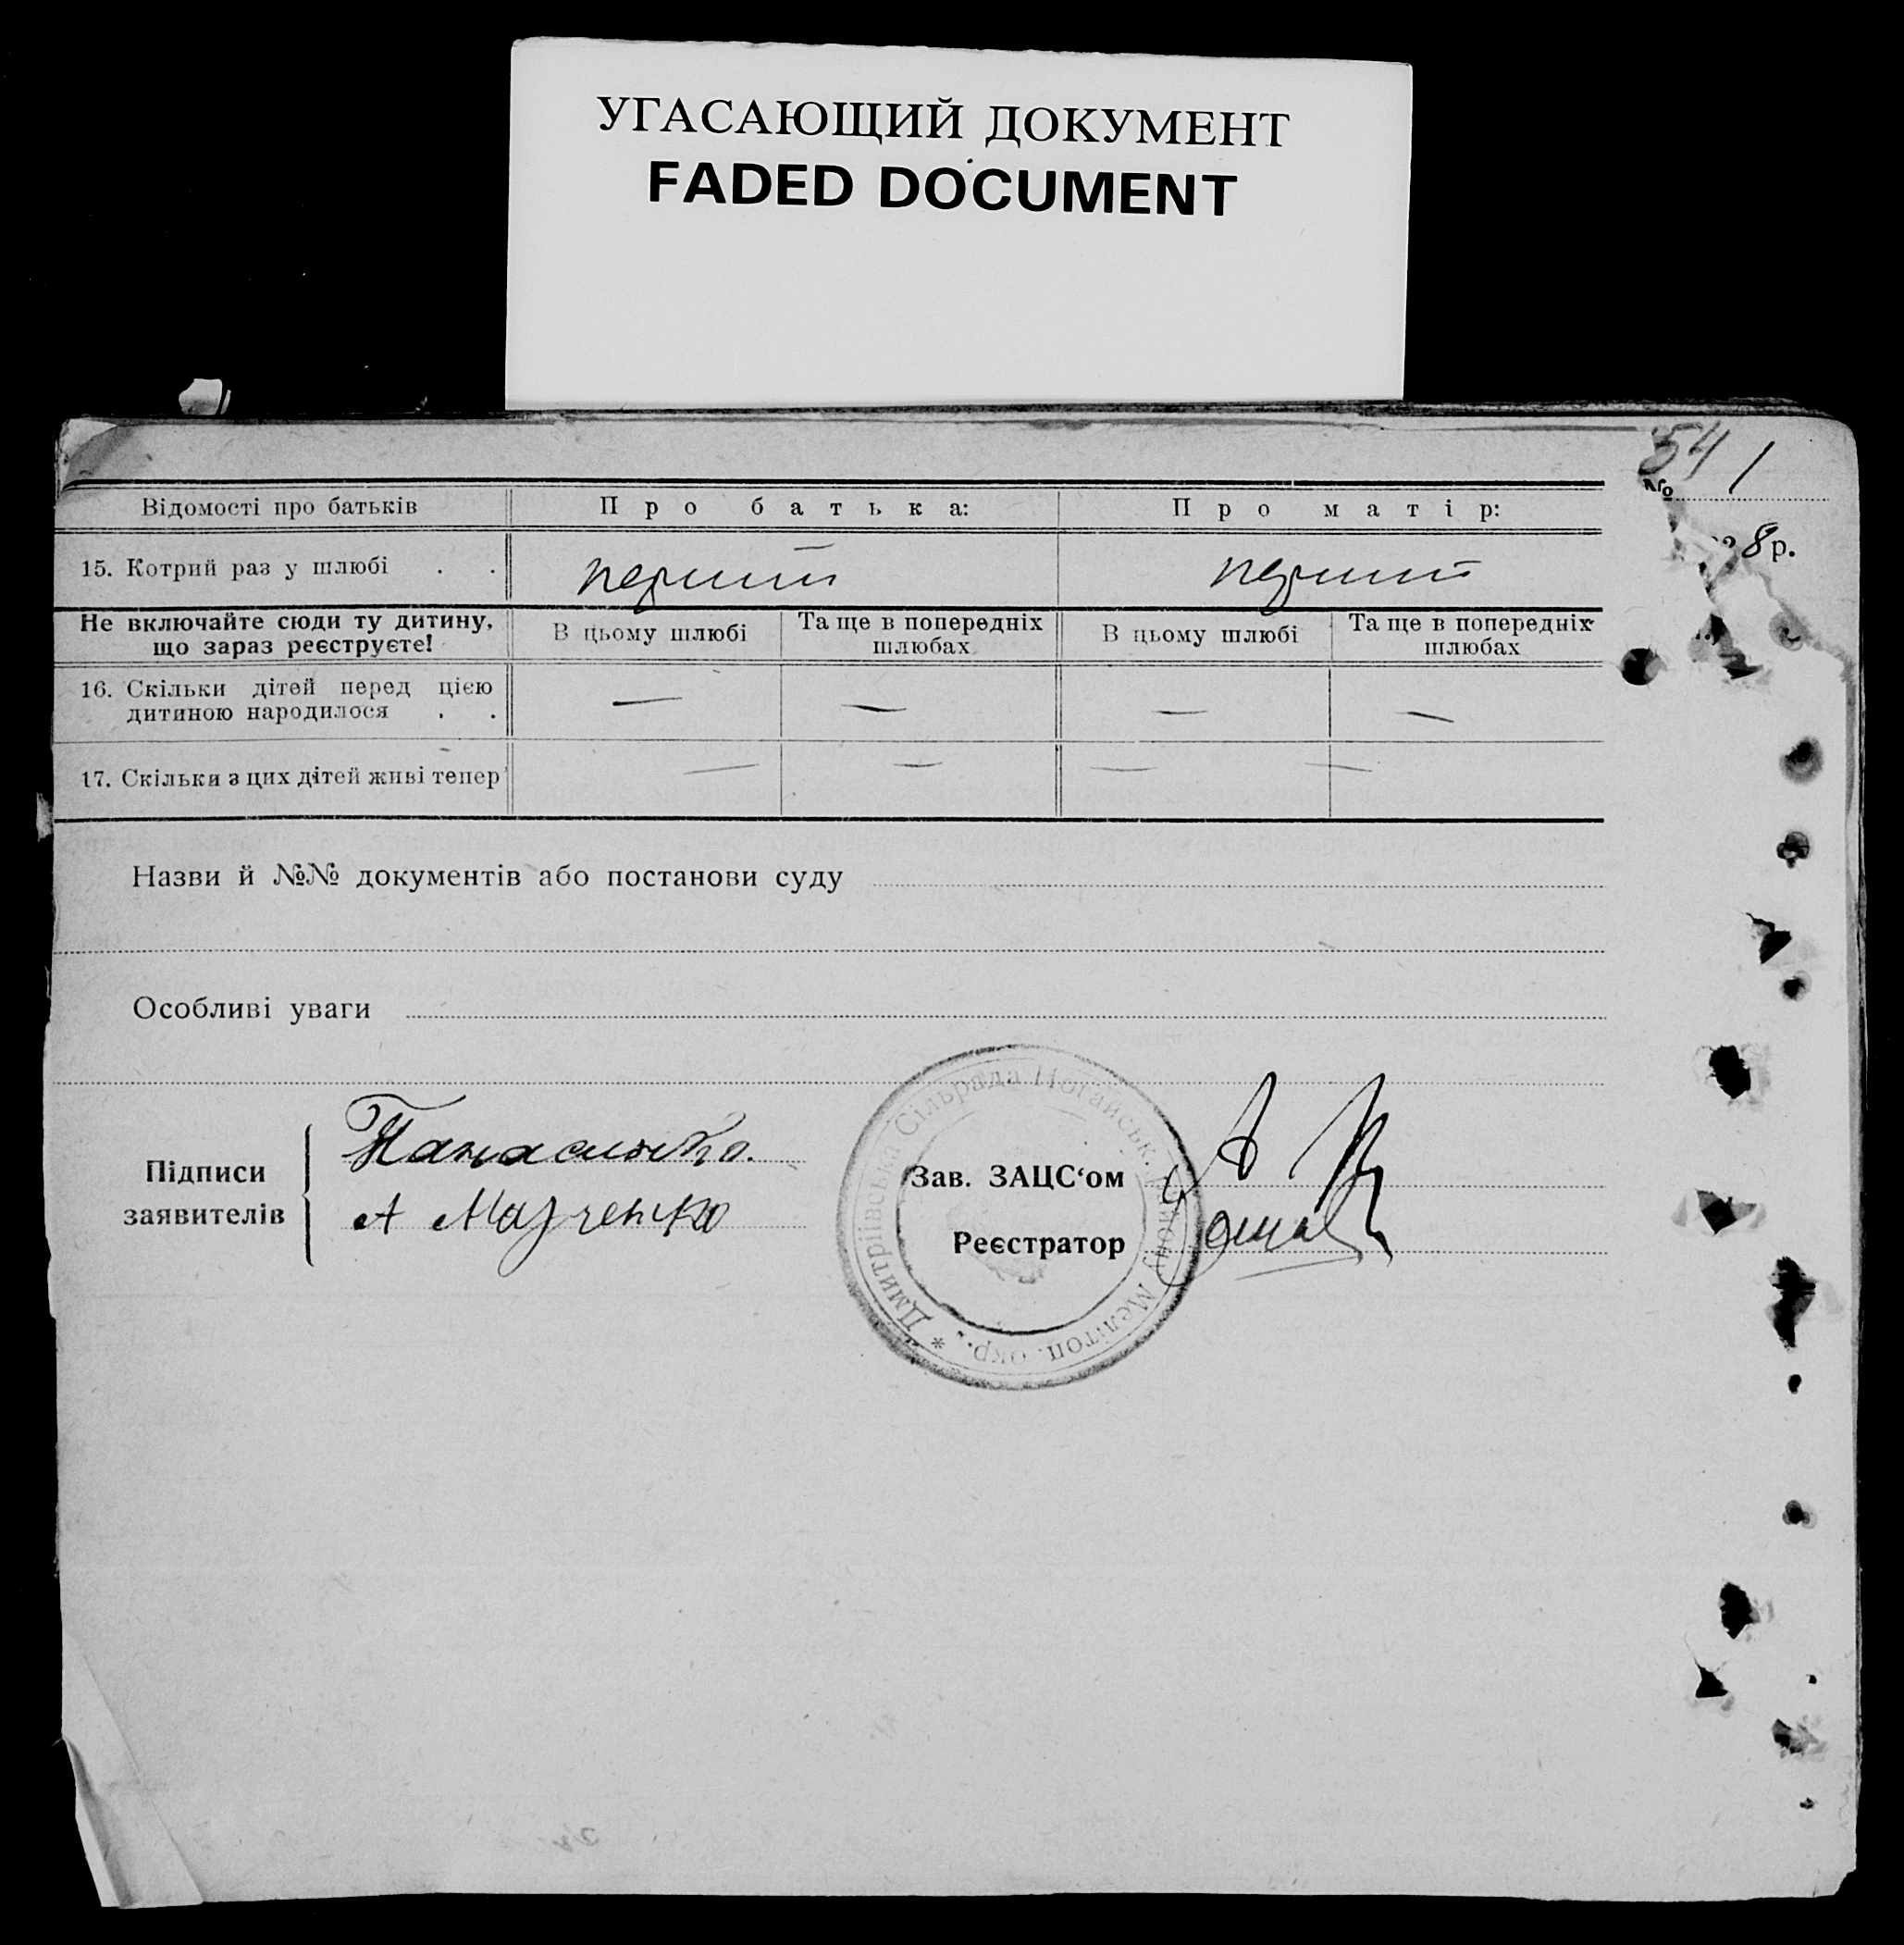 УГАСАЮЩИЙ ДОКУМЕНТ
FADED DOCUMENT
54 1
№
8 р.
Відомості про батьків
Про батька:
Про матір:
15. Котрий раз у шлюбі . .
перший
перший
Не включайте сюди ту дитину,
що зараз реєструєте!
В цьому шлюбі
Та ще в попередніх
шлюбах
В цьому шлюбі
Та ще в попередніх
шлюбах
16. Скільки дітей перед цією
дитиною народилося . .
— — — —
17. Скільки з цих дітей живі тепер
— — — —
Назви й №№ документів або постанови суду
Особливі уваги
Підписи
заявителів
Панасенко.
А Марченко
Зав. ЗАЦС‘ом
Реєстратор
* Дмитріівська Сільрада Ногайськ. Району Мелітоп. окр.